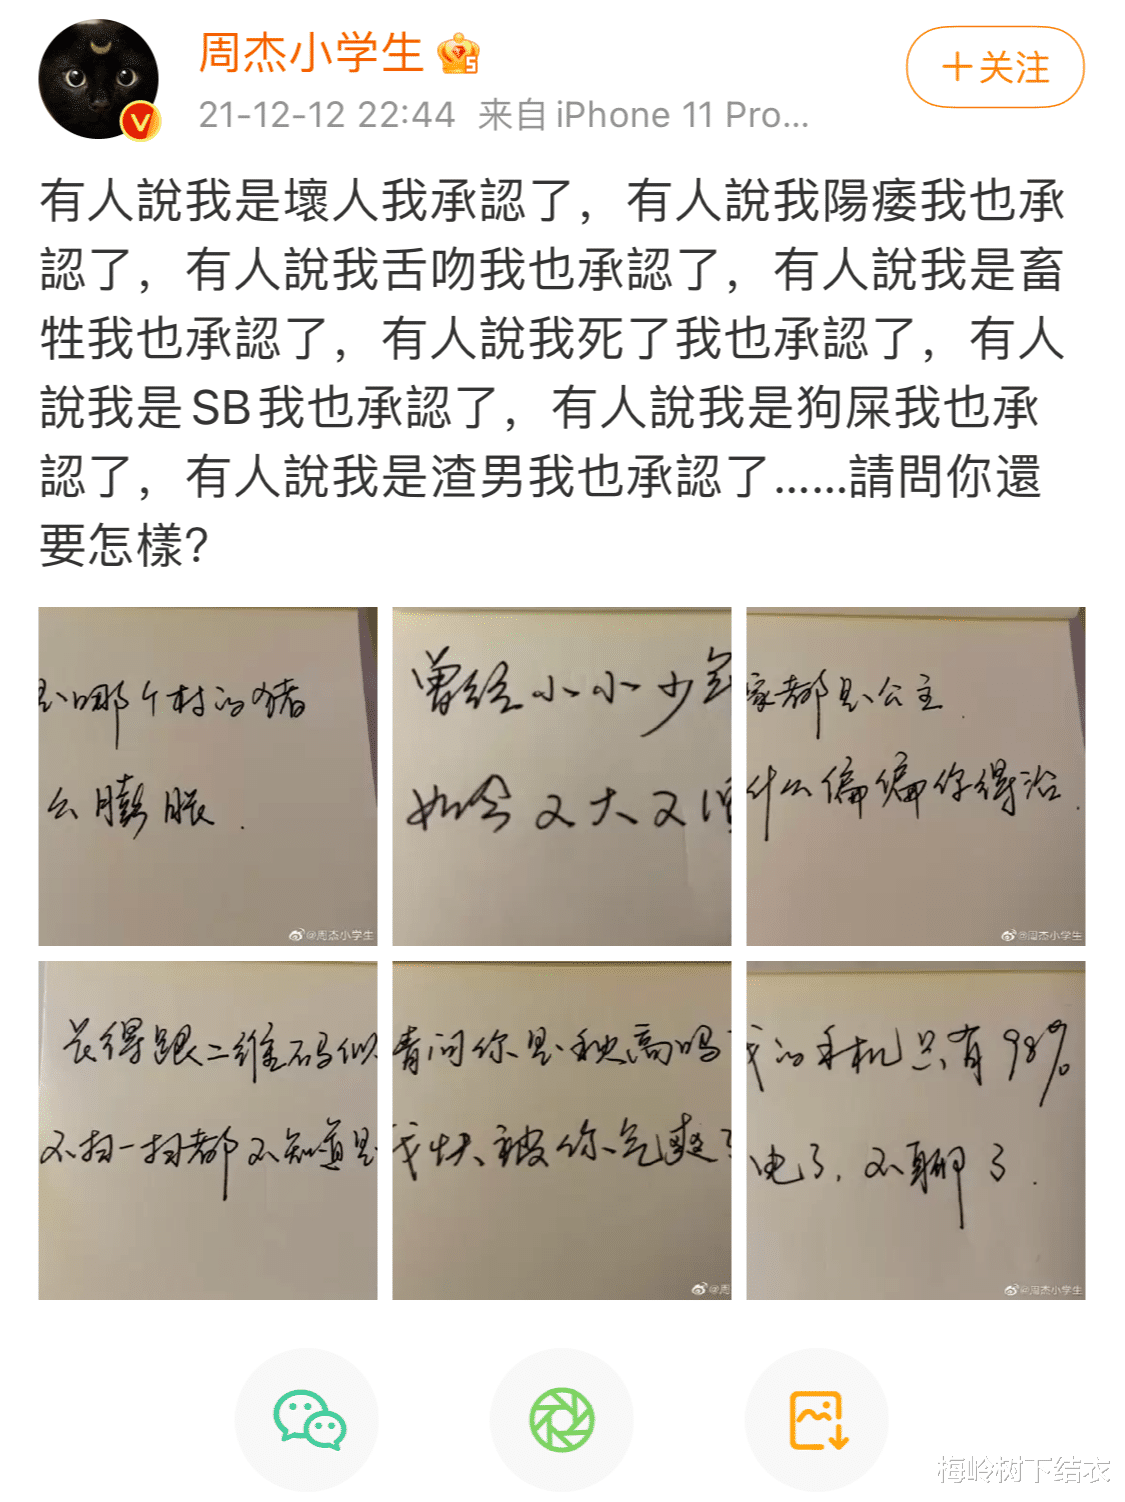 周杰小学生
21-12-12 22:44 来自 iPhone 11 Pro...
+关注
有人說我是壞人我承認了，有人說我陽痿我也承
認了，有人說我舌吻我也承認了，有人說我是畜
牲我也承認了，有人說我死了我也承認了，有人
說我是SB我也承認了，有人說我是狗屎我也承
認了，有人說我是渣男我也承認了......請問你還
要怎樣?
是哪个村的猪
么膨胀.
@周杰小学生
曾经小小少年
如今又大又
家都是公主.
什么偏偏你得治.
@周杰小学生
长得跟二维码似
不扫一扫都不知道是
请问你是秋高吗
我快被你气爽了
@周
我的手机只有98%
电了,不聊了.
@周杰小学生
梅岭树下结衣